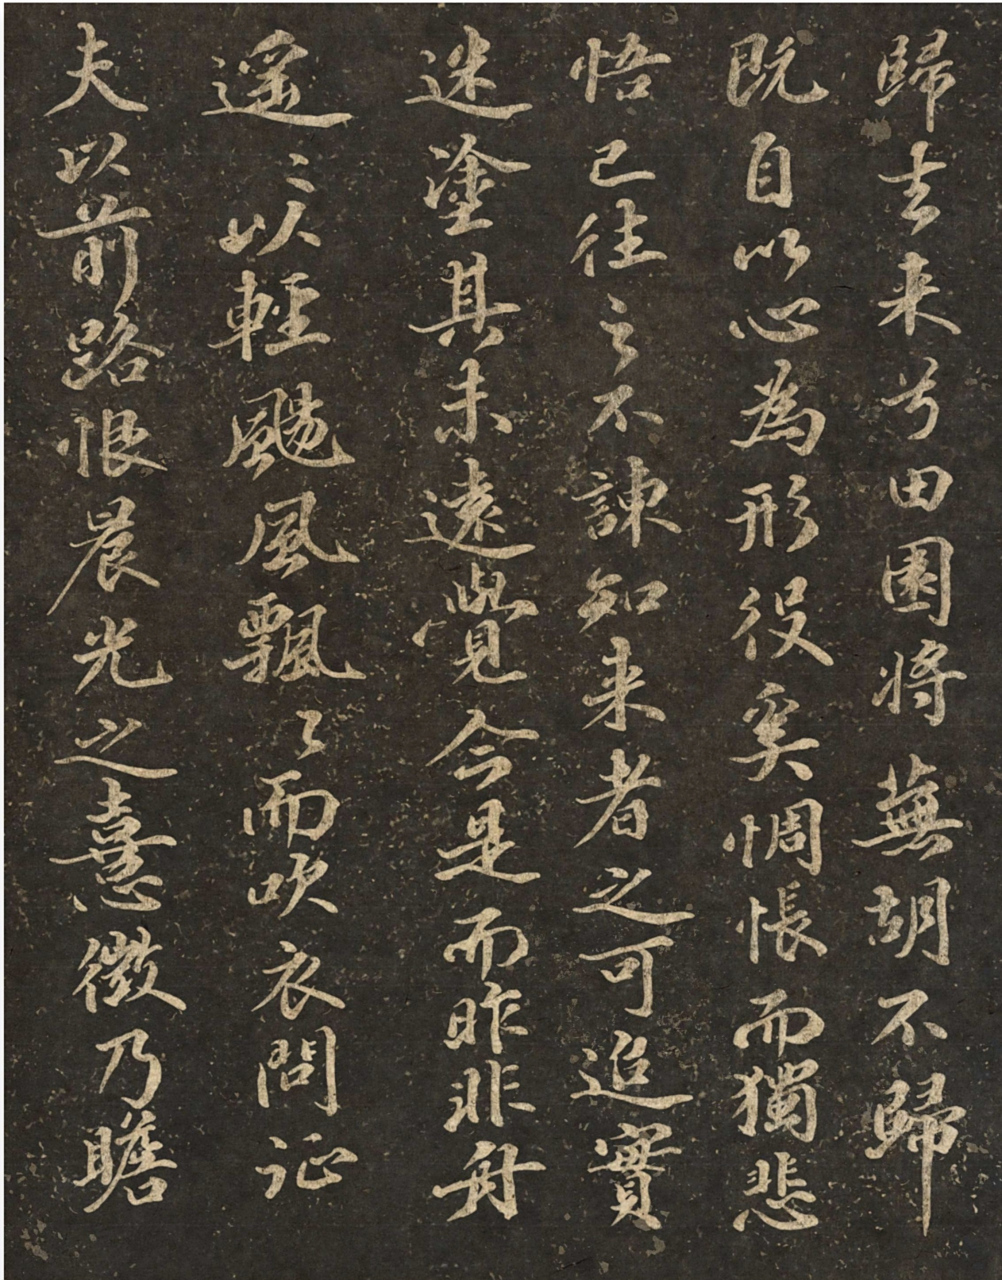 歸去来兮田園将蕪胡不歸
既自以心為形役奚惆悵而獨悲
悟已往之不諫知来者之可追實
迷塗其未遠覺今是而昨非舟
遥〻以輕颺風飄〻而吹衣問征
夫以前路恨晨光之憙微乃瞻